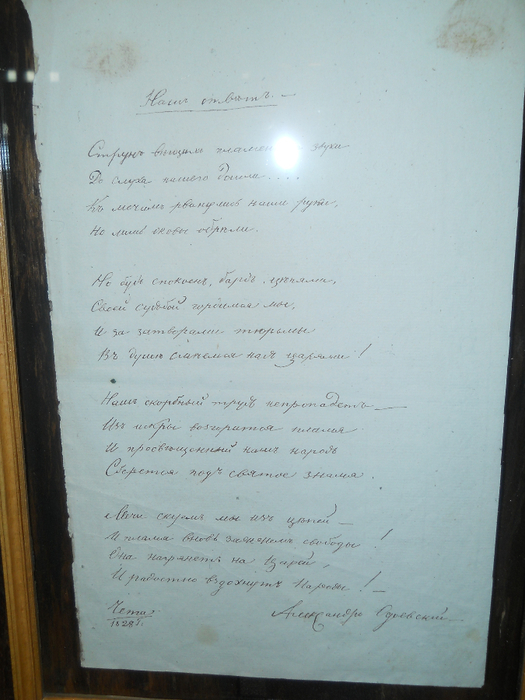 Нашъ отвѣтъ. —
Струнъ вѣщихъ пламе звуки
До слуха нашего дошли....
Къ мечамъ рванулись наши руки,
Но лишь оковы обрѣли.
Но будь спокоенъ, бардъ, цѣпями,
Своей судьбой гордимся мы,
И за затворами тюрьмы
Въ душѣ смѣемся надъ царями!
Нашъ скорбный трудъ непропадетъ —
Изъ искры возгорится пламя
И просвѣщенный нашъ народъ
Сберется подъ святое знамя.
Мечи скуемъ мы изъ цѣпей —
И пламя вновь зажжемъ свободы!
Она нагрянетъ на Царей,
И радостно вздохнутъ Народы! —
Чета
1828 г.
Александръ Одоевский